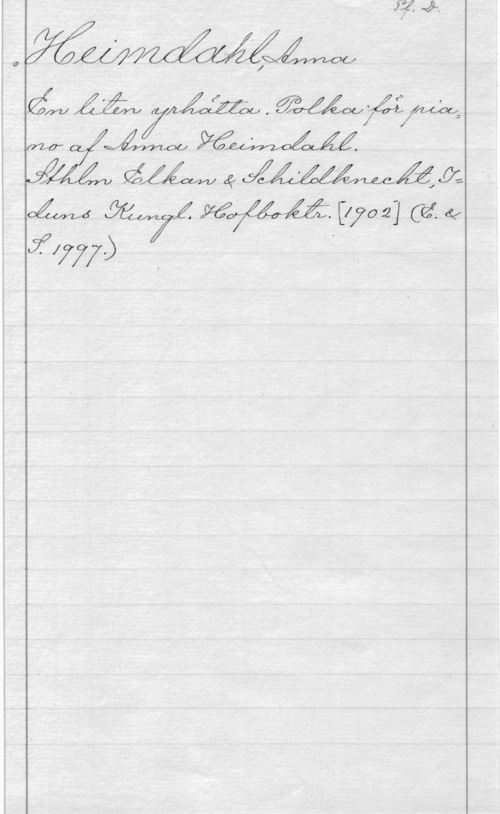 Pf. D.
Heimdahl, Anna
En liten yrhätta. Polka för pia-
no af Anna Heimdahl.
Sthlm Elkan & Schildknecht, I-
duns Kungl. Hofboktr. [1902] (E. &
S. 1997.)